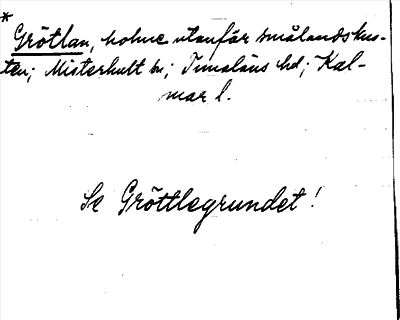 *
Grötlan, holme utanför smålandskus-
ten; Misterhult sn; Tunaläns hd; Kal-
mar l.
Se Gröttlegrundet!